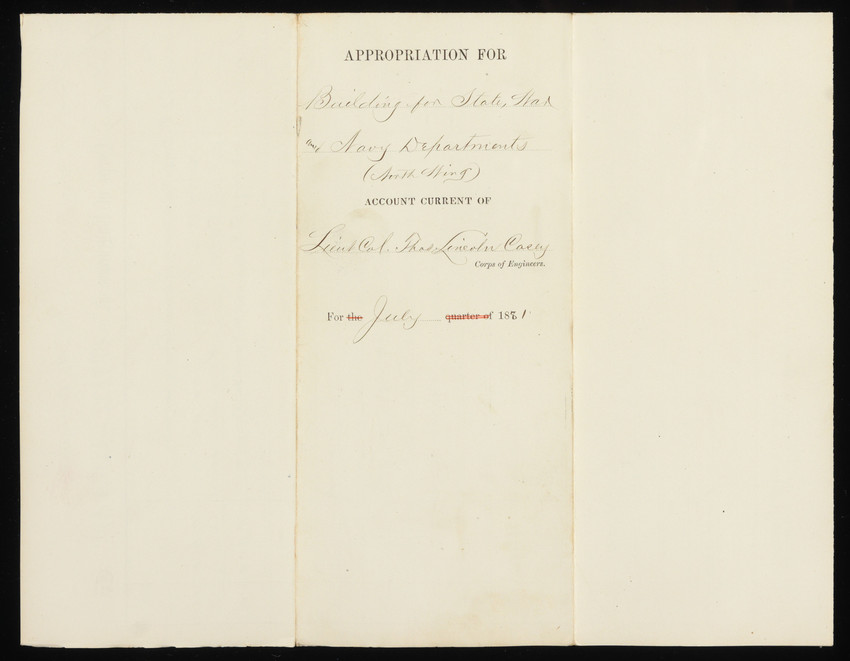 APPROPRIATION FOR
Building for State, War
and Navy Departments
(North Wing)
ACCOUNT CURRENT OF
Lieut Col. Thos Lincoln Casey
Corps of Engineers.
For the July quarter of 1881